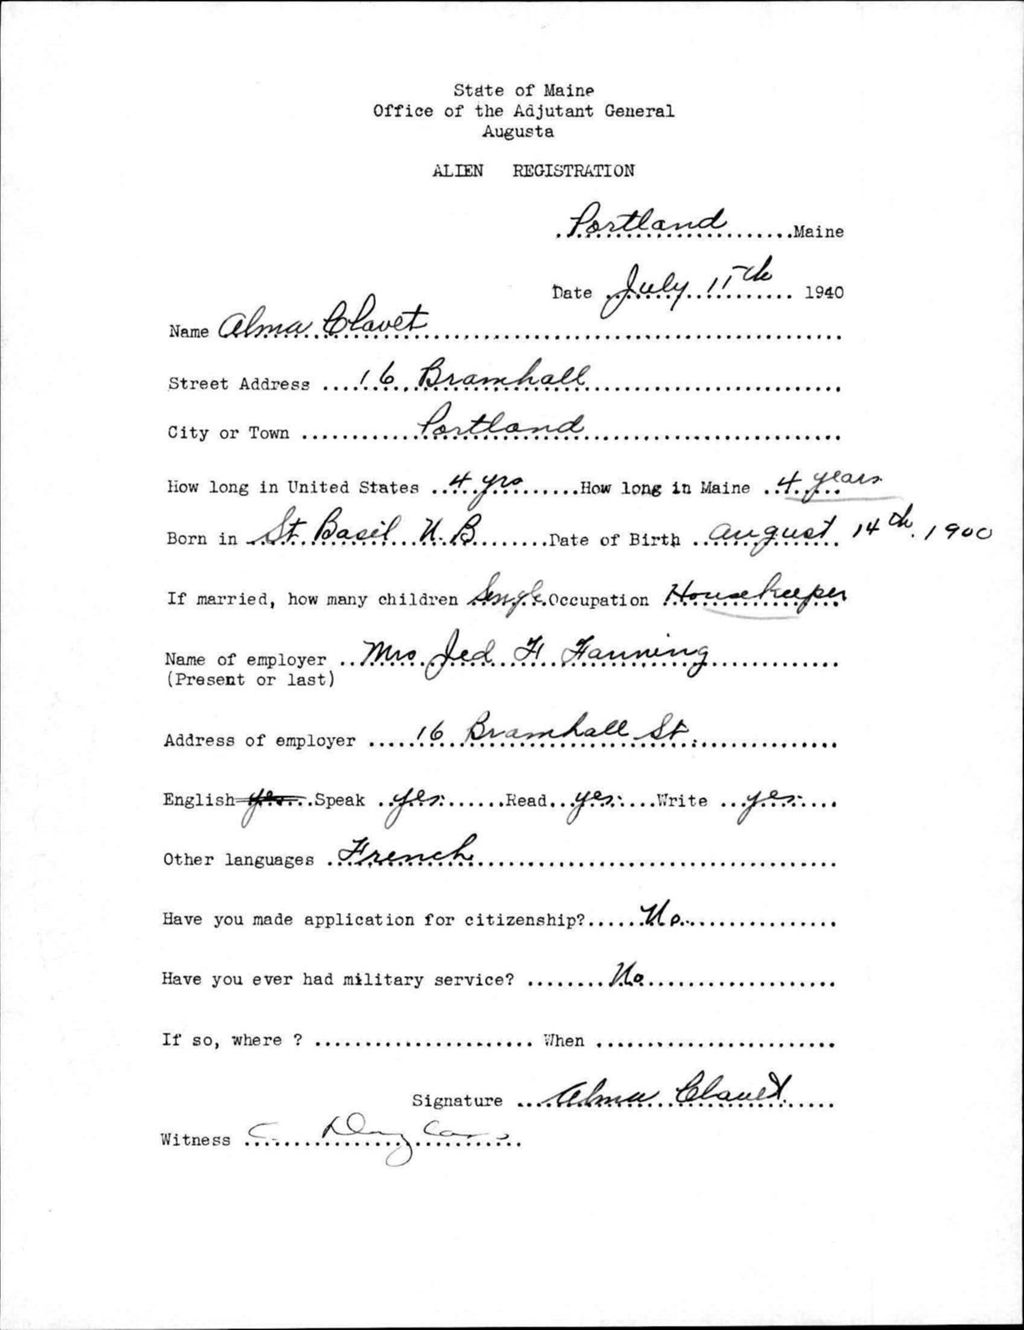 State of Maine
Office of the Adjutant General
Augusta
ALIEN REGISTRATION
Portland Maine
Date July 11th 1940
Name Alma Clavet
Street Address 16 Bramhall
City or Town Portland
How long in United States 4 yrs How long in Maine 4 years
Born in St. Basil N.B. Date of Birth August 14th, 1900
If married, how many children Single Occupation Housekeeper
Name of employer Mrs Jed H Fanning
(Present or last)
Address of employer 16 Bramhall St.
English yes Speak yes Read yes Write yes
Other languages French
Have you made application for citizenship? No.
Have you ever had military service? No
If so, where ? When
Signature Alma Clavet.
Witness C.